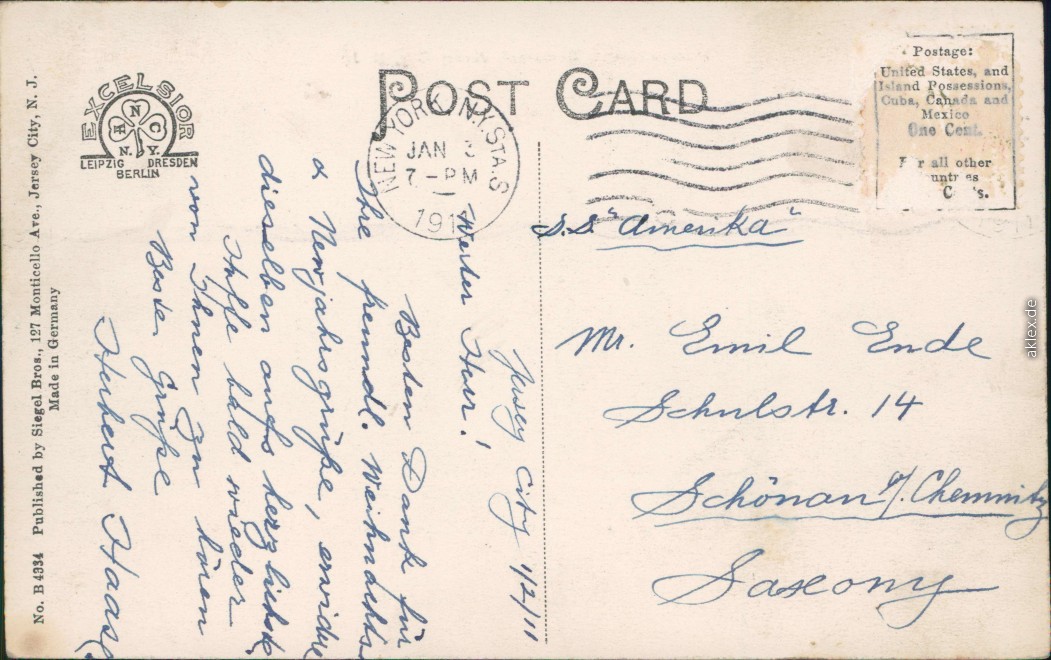 POST CARD
EXCELSIOR
H N C
N.Y.
LEIPZIG DRESDEN
BERLIN
No. B 4334 Published by Siegel Bros., 127 Monticello Ave., Jersey City, N. J.
Made in Germany
NEW YORK, N.Y. STA. S
JAN 3
7 - PM
1911
Postage:
United States, and
Island Possessions,
Cuba, Canada and
Mexico
One Cent.
For all other
Countries
Jersey City 1/2/11
Werter Herr!
Besten Dank für
Ihre freundl. Weihnachts
& Newjahrsgrüße, erwidre
dieselben aufs herzlichste
Hoffe bald wieder
von Ihnen zu hören
Beste Grüße
Herbert Haase
S.S. "Amerika"
Mr. Emil Ende
Schulstr. 14
Schönau a/. Chemnitz
Saxony
aklex.de